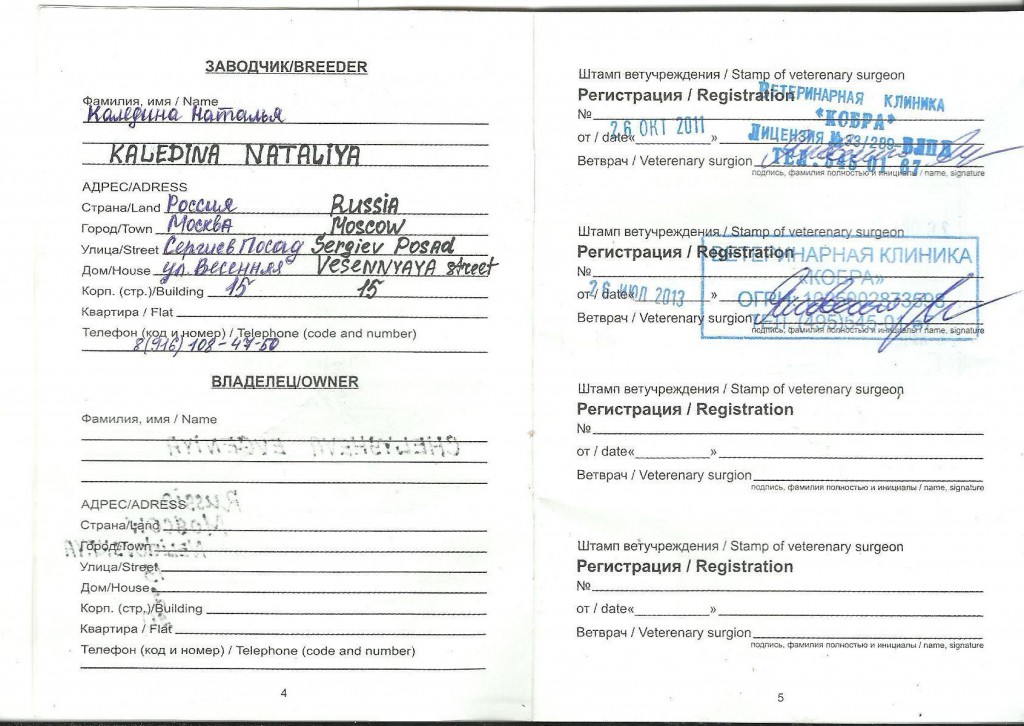 ЗАВОДЧИК/BREEDER
Фамилия, имя / Name
Каледина Наталья
KALEDINA NATALIYA
АДРЕС/ADRESS
Страна/Land Россия RUSSIA
Город/Town Москва MOSCOW
Улица/Street Сергиев Посад Sergiev Posad
Дом/House ул. Весенняя VESENNYAYA street
Корп. (стр.)/Building 15 15
Квартира / Flat
Телефон (код и номер) / Telephone (code and number)
8(916)108-47-50
ВЛАДЕЛЕЦ/OWNER
Фамилия, имя / Name
АДРЕС/ADRESS
Страна/Land
Город/Town
Улица/Street
Дом/House
Корп. (стр.)/Building
Квартира / Flat
Телефон (код и номер) / Telephone (code and number)
4
Штамп ветучреждения / Stamp of veterenary surgeon
Регистрация / Registration
ВЕТЕРИНАРНАЯ КЛИНИКА
№
«КОБРА»
от / date« 26 ОКТ 2011 »
ЛИЦЕНЗИЯ
Ветврач / Veterenary surgion
подпись, фамилия полностью и инициалы / name, signature
Штамп ветучреждения / Stamp of veterenary surgeon
Регистрация / Registration
ВЕТЕРИНАРНАЯ КЛИНИКА
№
«КОБРА»
от / date« 26 ИЮЛ 2013 »
Ветврач / Veterenary surgion
подпись, фамилия полностью и инициалы / name, signature
Штамп ветучреждения / Stamp of veterenary surgeon
Регистрация / Registration
№
от / date« »
Ветврач / Veterenary surgion
подпись, фамилия полностью и инициалы / name, signature
Штамп ветучреждения / Stamp of veterenary surgeon
Регистрация / Registration
№
от / date« »
Ветврач / Veterenary surgion
подпись, фамилия полностью и инициалы / name, signature
5